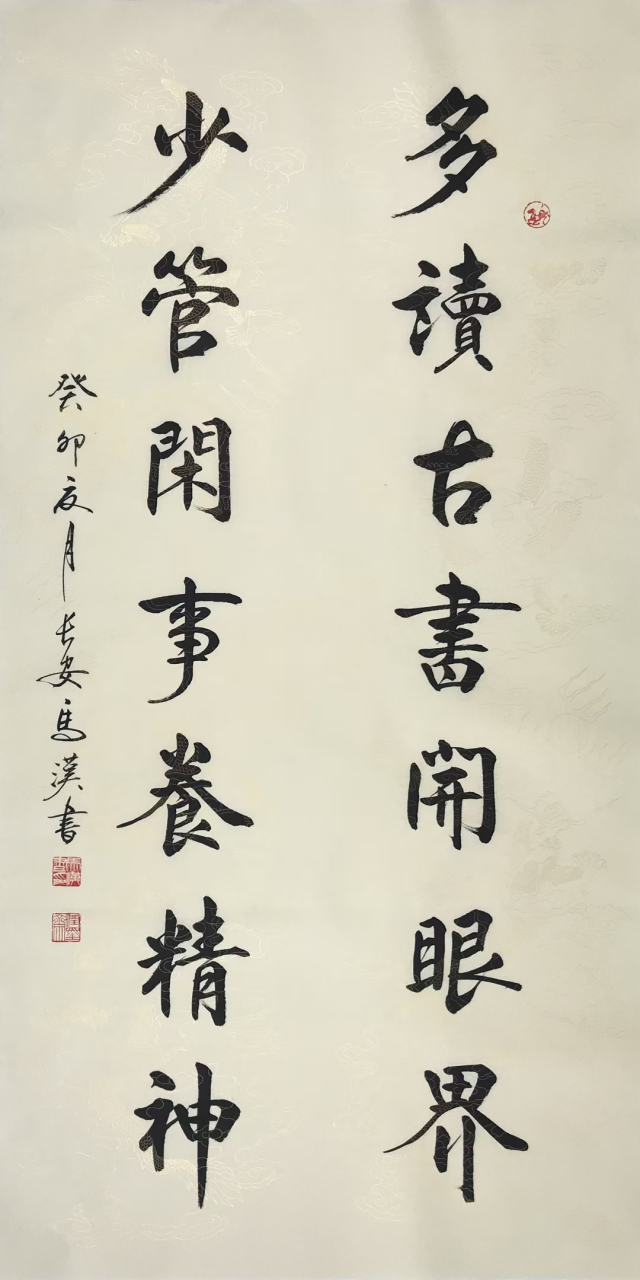 多讀古書開眼界
少管閑事養精神
癸卯夏月长安馬漢書